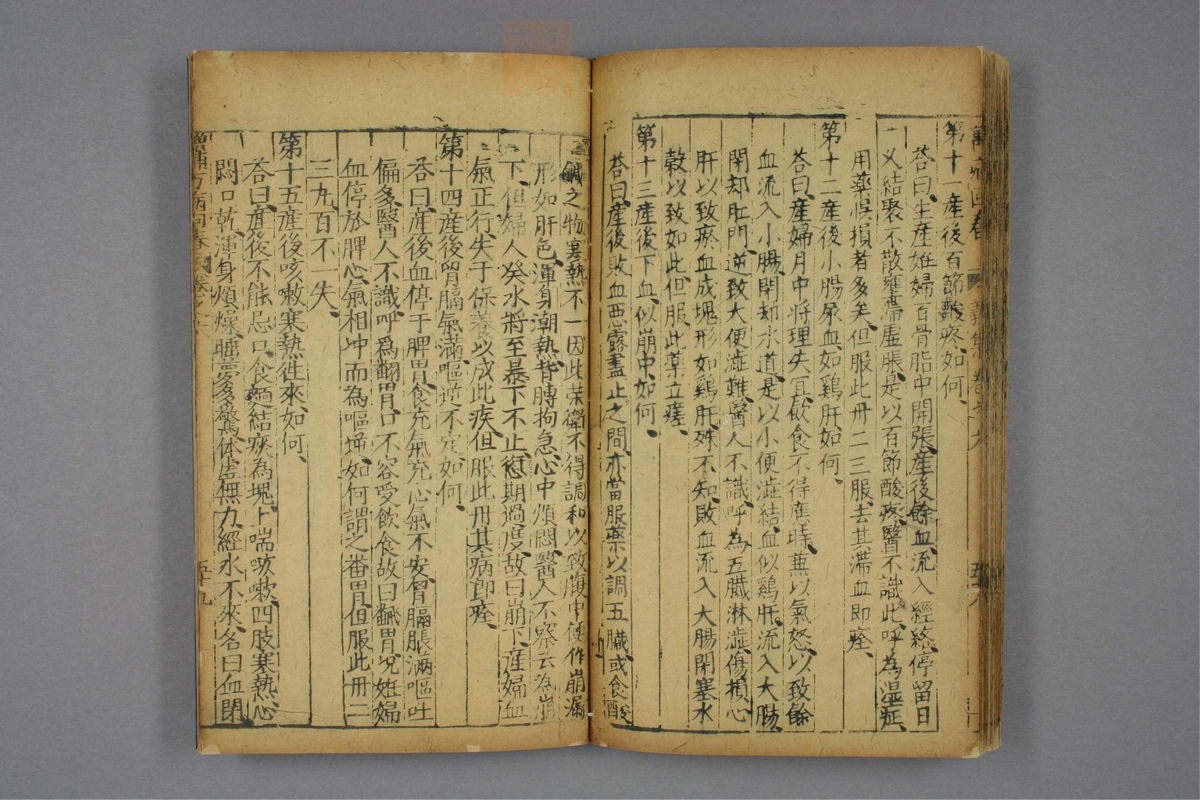 第十一產後百節酸疼如何
荅曰生產姙婦百骨脂中開張產後餘血流入經絡停留日
乂結聚不散壅滯虛脹是以百節酸疼醫不識此呼為湿症
用藥悮損者多矣但服此丹二三服去其滯血即痊
第十二產後小腸尿血如鷄肝如何
荅曰產婦月中將理失宜飲食不得應時蕪以氣怒以致餘
血流入小腸閉却水道是以小便澁結血似鷄肝流入大腸
閉却肛門逆致大便澁難醫人不識呼為五臟淋澁傷損心
肝以致瘀血成塊形如鷄肝殊不知敗血流入大腸閉塞水
穀以致如此但服此藥立瘥
第十三產後下血似崩中如何
荅曰產後敗血惡露盡止之間亦當服藥以調五臟或食酸
鹹之物寒熱不一因此荣衛不得調和以致腹中便作崩漏
形如肝色渾身潮熱背膊拘急心中煩悶醫人不察云為崩
下但婦人癸水將至暴下不止愆期過度故曰崩下產婦血
氣正行失于保養以成此疾但服此丹其病即痊
第十四產後胃膈氣滿嘔逆不定如何
荅曰產後血停于脾胃食充氣充心氣不安胃膈脹滿嘔吐
偏多醫人不識呼爲翻胃口不容受飲食故曰飜胃况姙婦
血停於脾心氣相冲而為嘔如何謂之番胃但服此丹二
三九百不一失
第十五產後咳嗽寒熱徃來如何
荅曰產後不能忌口食麵結瘀為塊上喘咳嗽四肢寒熱心
悶口乾渾身煩燥睡夢多驚体虚無力經水不來名曰血閉
萬病回春
卷之六
五十九